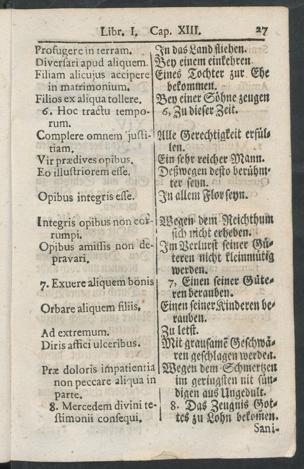 Libr. I. Cap. XIII. 27
Profugere in terram.
Diversari apud aliquem.
Filiam alicujus accipere
in matrimonium.
Filios ex aliqua tollere.
6. Hoc tractu tempo-
rum.
Complere omnem justi-
tiam.
Vir prædives opibus.
Eo illustriorem esse.
Opibus integris esse.
Integris opibus non cor-
rumpi.
Opibus amissis non de-
pravari.
7. Exuere aliquem bonis
Orbare aliquem filiis.
Ad extremum.
Diris affici ulceribus.
Præ doloris impatientia
non peccare aliqua in
parte.
8. Mercedem divini te-
stimonii consequi.
In das Land fliehen.
Bey einem einkehren.
Eines Tochter zur Ehe
bekommen.
Bey einer Söhne zeugen
6. Zu dieser Zeit.
Alle Gerechtigkeit erfül-
len.
Ein sehr reicher Mann.
Deßwegen desto berühm-
ter seyn.
In allem Flor seyn.
Wegen dem Reichthum
sich nicht erheben.
Im Verlurst seiner Gü-
teren nicht kleinmütig
werden.
7. Einen seiner Güte-
ren berauben.
Einen seiner Kinderen be-
rauben.
Zu letst.
Mit grausamē Geschwä-
ren geschlagen werden.
Wegen dem Schmertzen
im geringsten nit sün-
digen aus Ungedult.
8. Das Zeugnis Got-
tes zu Lohn bekomen.
Sani-